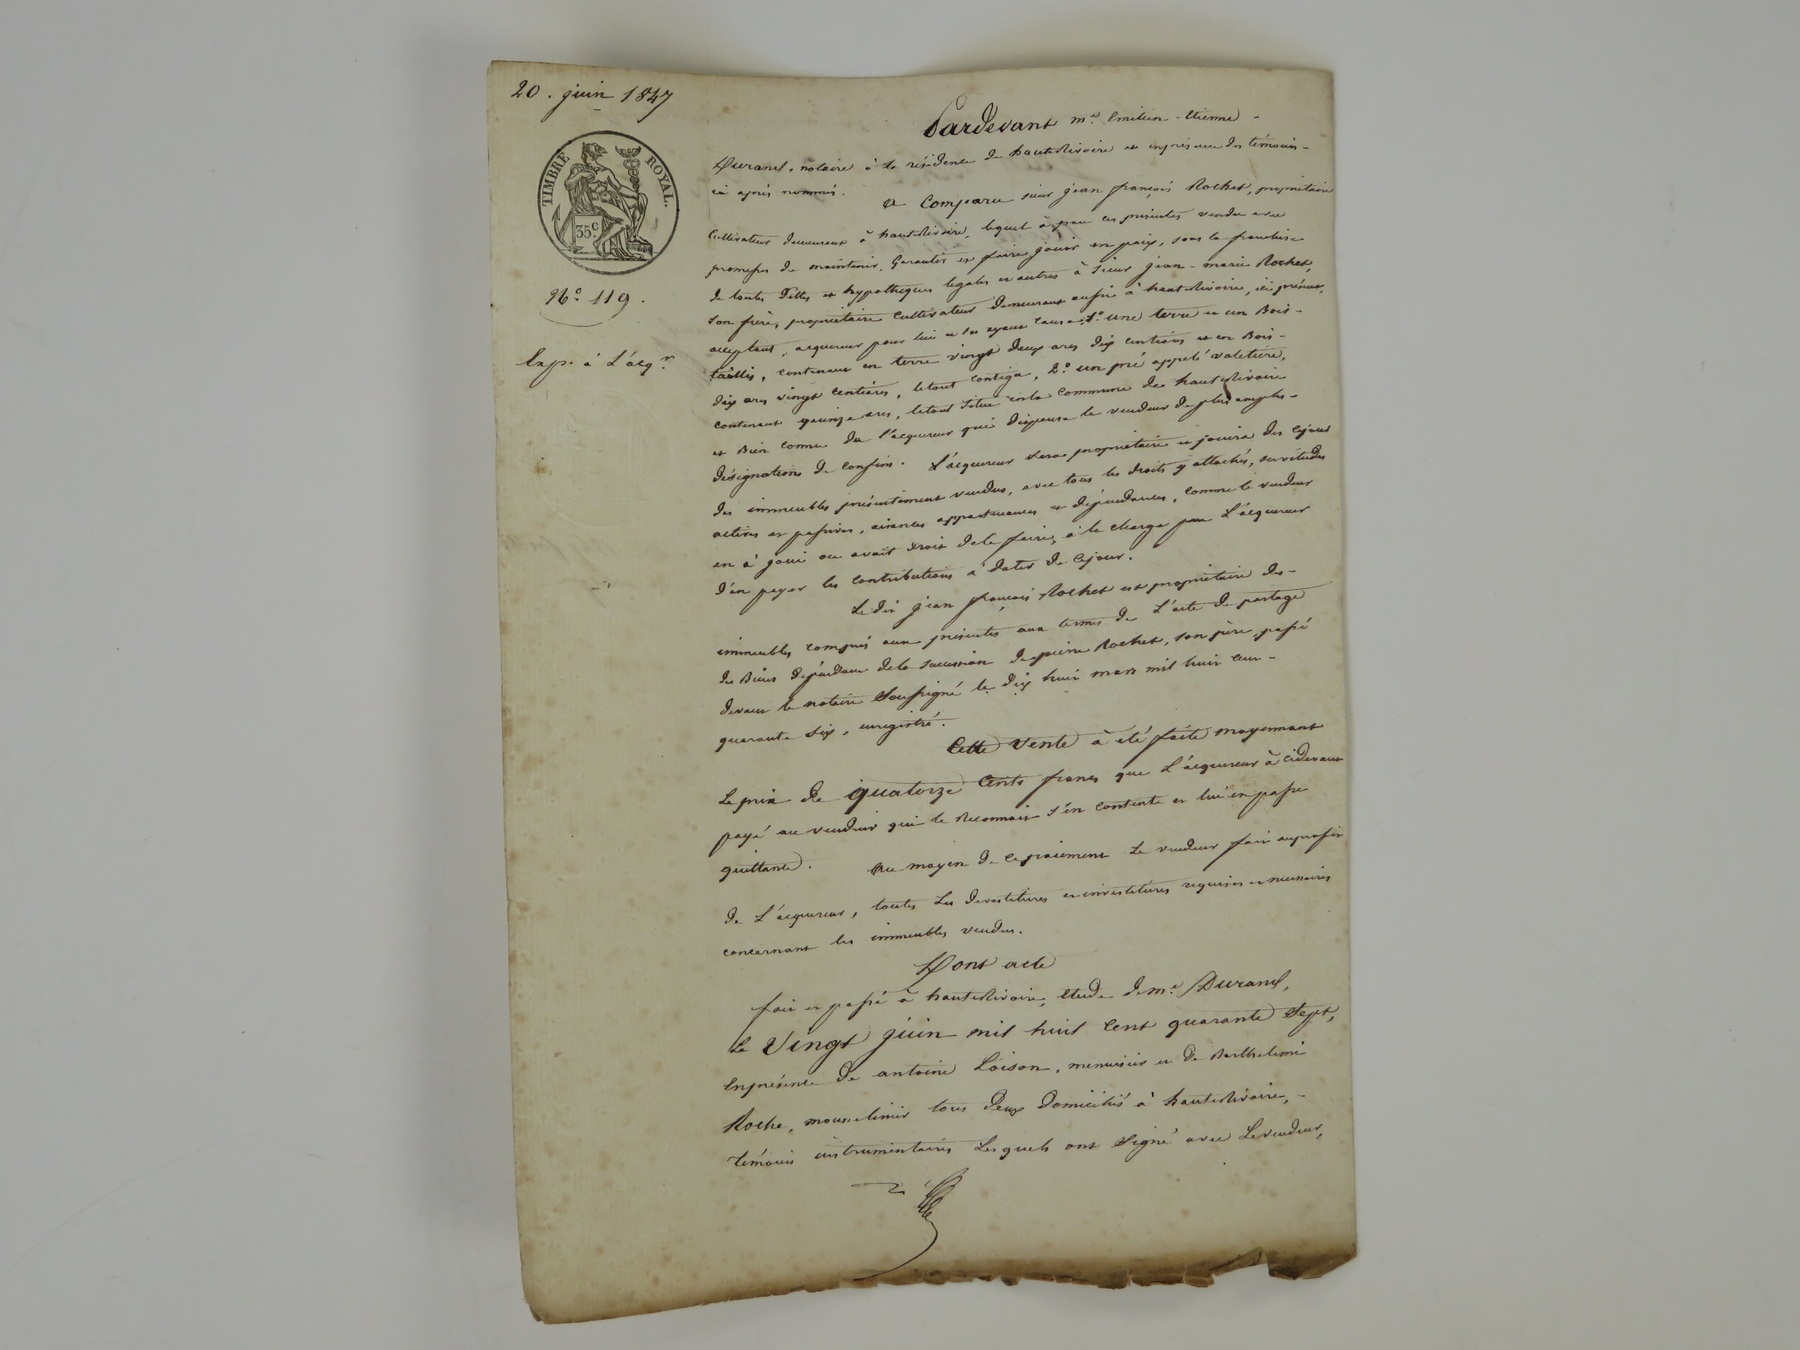 20. juin 1847
TIMBRE ROYAL.
35 c.
No. 119.
Exp. à L'acqr.
Pardevant me. Emilien-Etienne -
Durand, notaire à la résidence de hauteRivoire et enprésence des témoins -
ci après nommés. a Comparu sieur jean françois Rochet, propriétaire
Cultivateur demeurant à hauteRivoire, lequel à par ces présentes vendu avec
promesse de maintenir, Garantir et faire jouir en paix, sous la franchise
de toutes Dettes et hypothèques légales et autres à Sieur jean-marie Rochet,
son frère, propriétaire cultivateur demeurant aussi à hauteRivoire, ici présent,
acceptant, acquereur pour lui et ses ayant cause, 1o. une terre et un Bois -
taillis, contenant en terre vingt deux ares dix centiares et en Bois -
dix ares vingt centiares, letout contigu, 2o. un pré appelé valetière,
contenant quinze ares, letout Situé enla commune de hauteRivoire
et Bien connu de l'acquereur qui dispense le vendeur de plus amples -
désignations de confins. L'acquereur sera propriétaire et jouira dès cejour
des immeubles présentement vendus, avec tous les droits y attachés, servitudes
actives et passives, aisances appartenances et dépendances, comme le vendeur
en à joui ou avait droit dele faire, à la charge par L'acquereur
d'en payer les contributions à dater de cejour.
Le dit jean françois Rochet est propriétaire des -
immeubles compris aux présentes aux termes de L'acte de partage
des Biens dépendant dela succession de pierre Rochet, son père, passé
devant le notaire Soussigné le dix huit mars mil huit cent -
quarante six, enregistré.
Cette vente à été faite moyennant
Le prix de quatorze Cents francs que L'acquereur à cidevant
payé au vendeur qui le Reconnait s'en contente et lui en passe
quittance. Au moyen de cepaiement Le vendeur fait auprofit
de L'acquereur, toutes Les devestitures et investitures requises et nécessaires
concernant les immeubles vendus.
Dont acte
fait et passé à hauteRivoire, étude de me. Durand,
Le Vingt juin mil huit cent quarante Sept,
Enprésence de antoine Loison, menuisier et de Barthelemi
Roche, mousselinier tous deux domiciliés à hauteRivoire, -
témoins instrumentaires Lesquels ont Signé avec Levendeur,